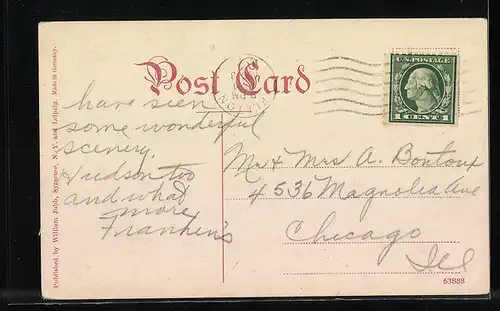 Post Card
U.S. POSTAGE
1 CENT 1
have seen
some wonderful
scenery.
Hudson too
and what
more
Franken's
Mr & Mrs A. Bontoux
4536 Magnolia Ave
Chicago
Ill
Published by William Jubb, Syracuse, N. Y. and Leipzig. Made in Germany.
63888